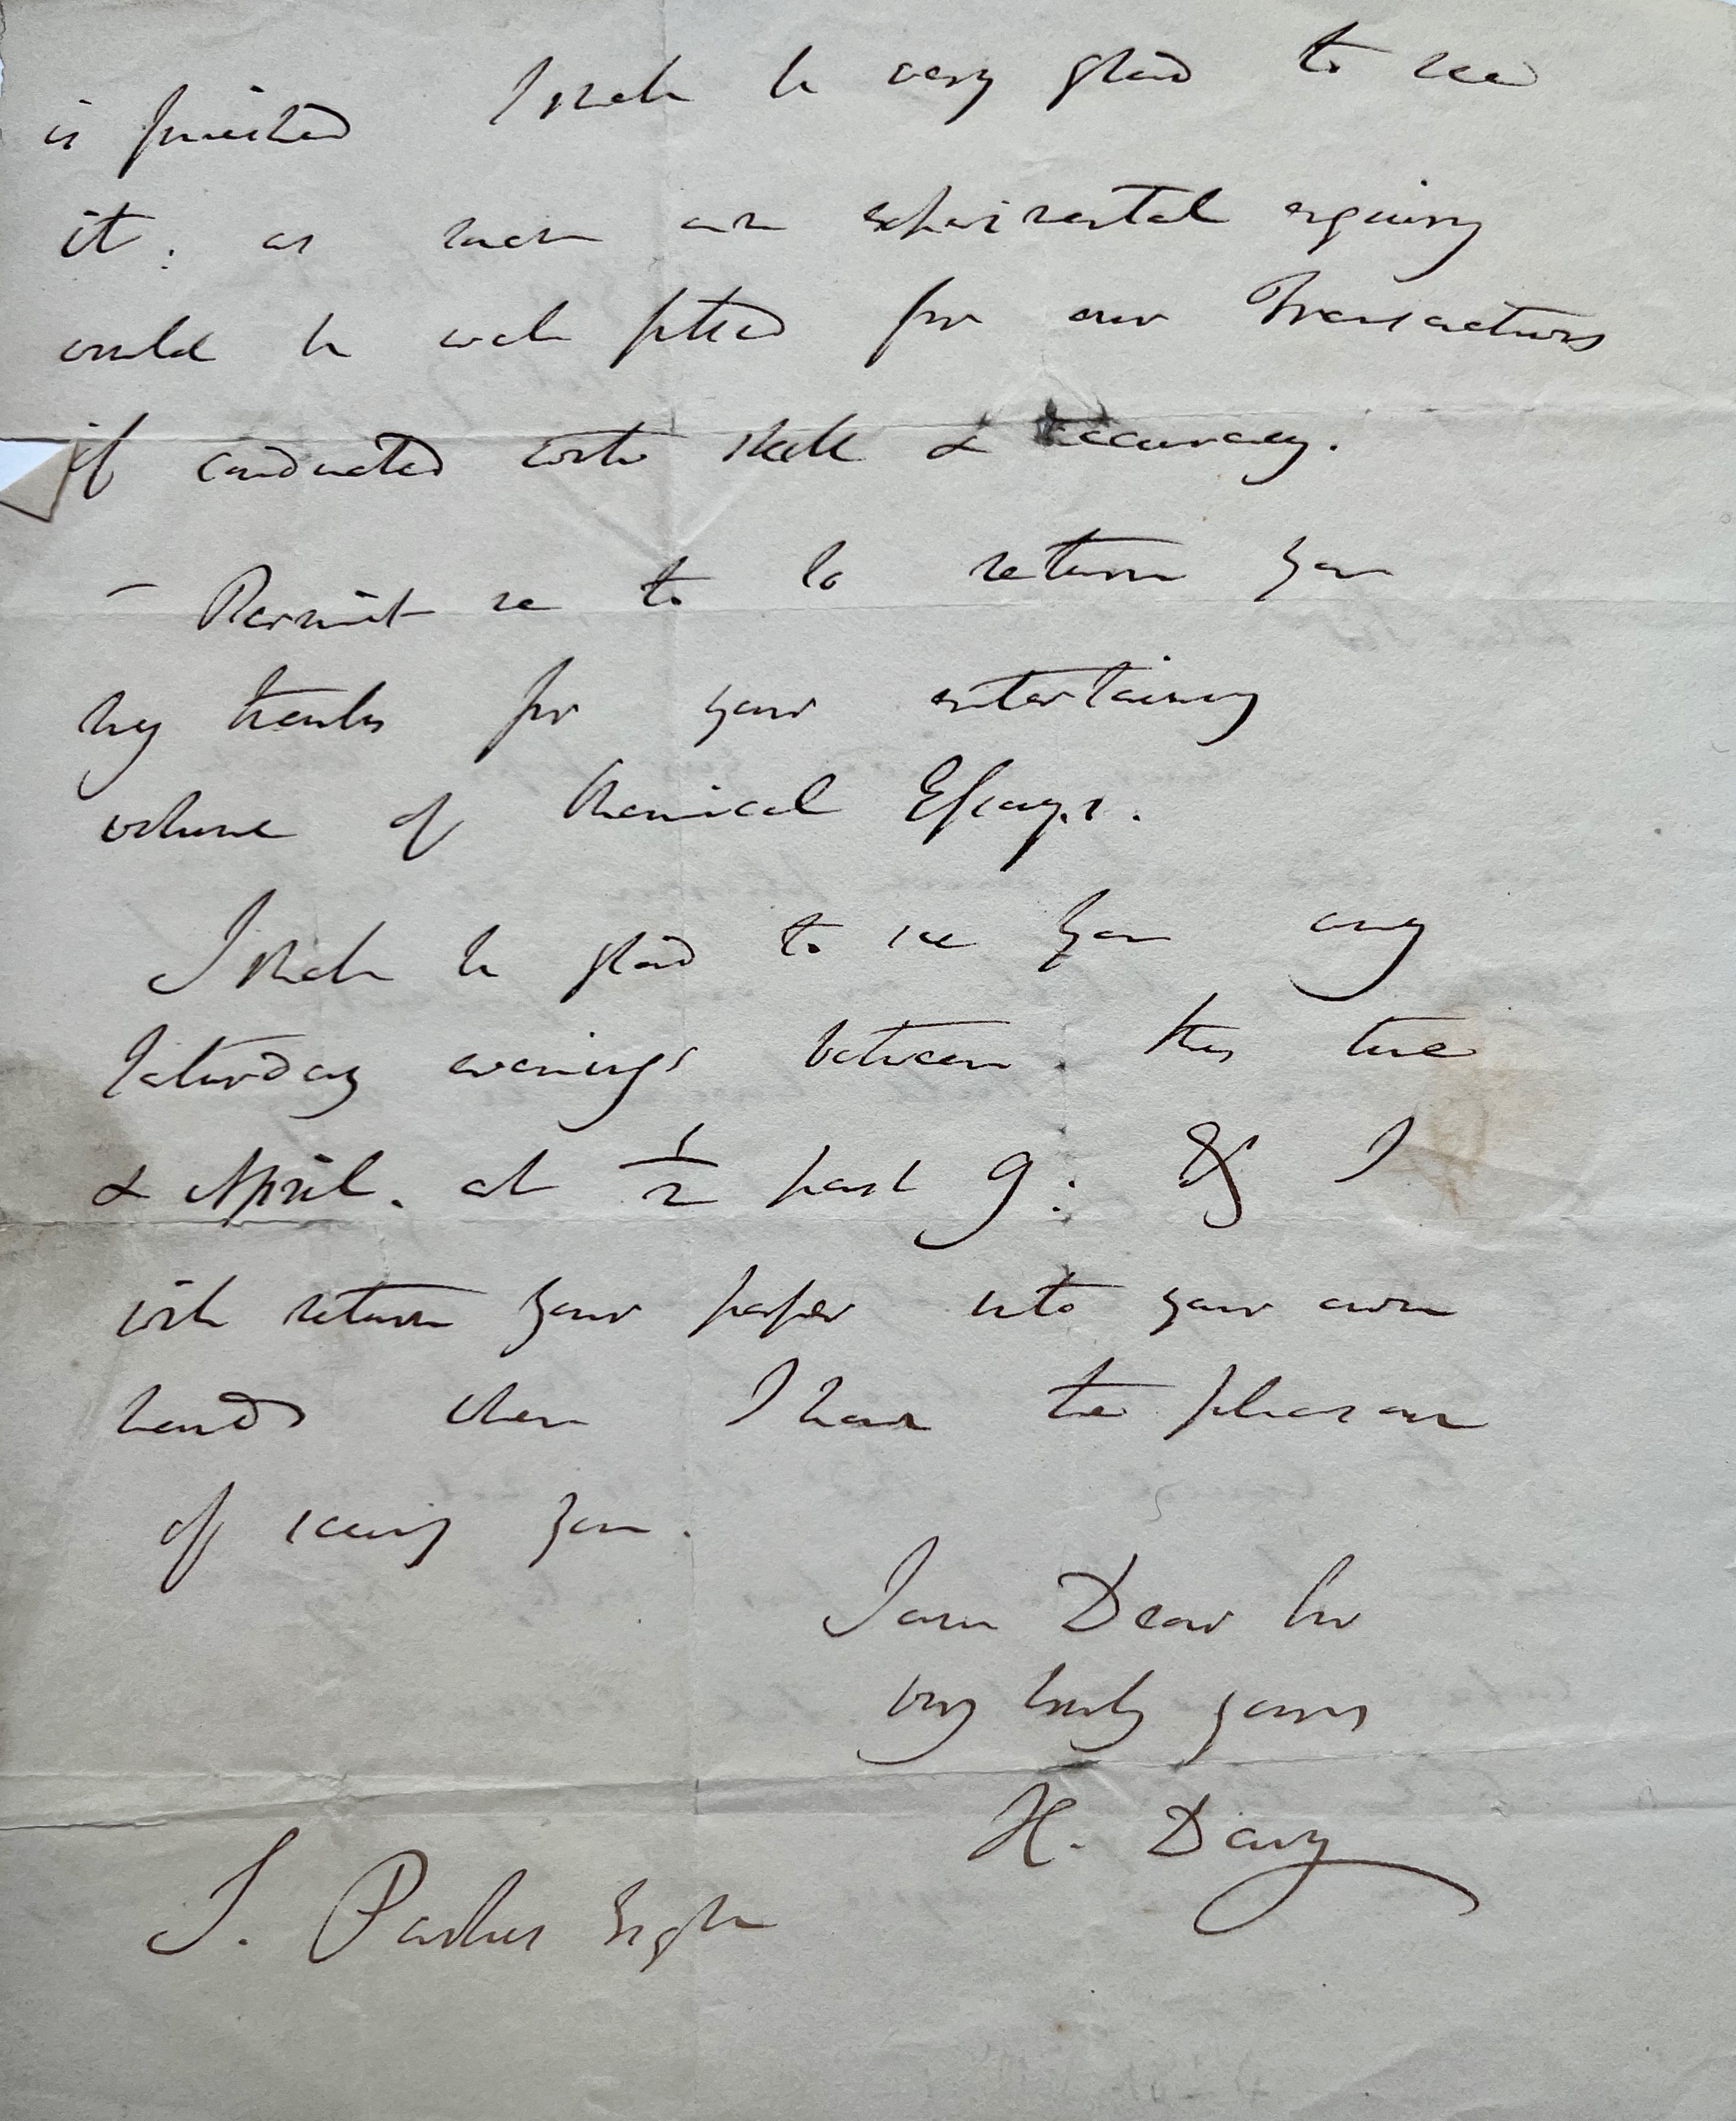 is finished I shall be very glad to see
it; as such an experimental enquiry
would be well fitted for our Transactions
if conducted with skill & accuracy.
– Permit me to to return you
my thanks for your entertaining
volume of Chemical Essays.
I shall be glad to see you any
Saturday evenings between this time
& April. at ½ past 9: & I
will return your paper into your own
hands when I have the pleasure
of seeing you.
I am Dear Sir
very truly yours
H. Davy
S. Parkes Esqre